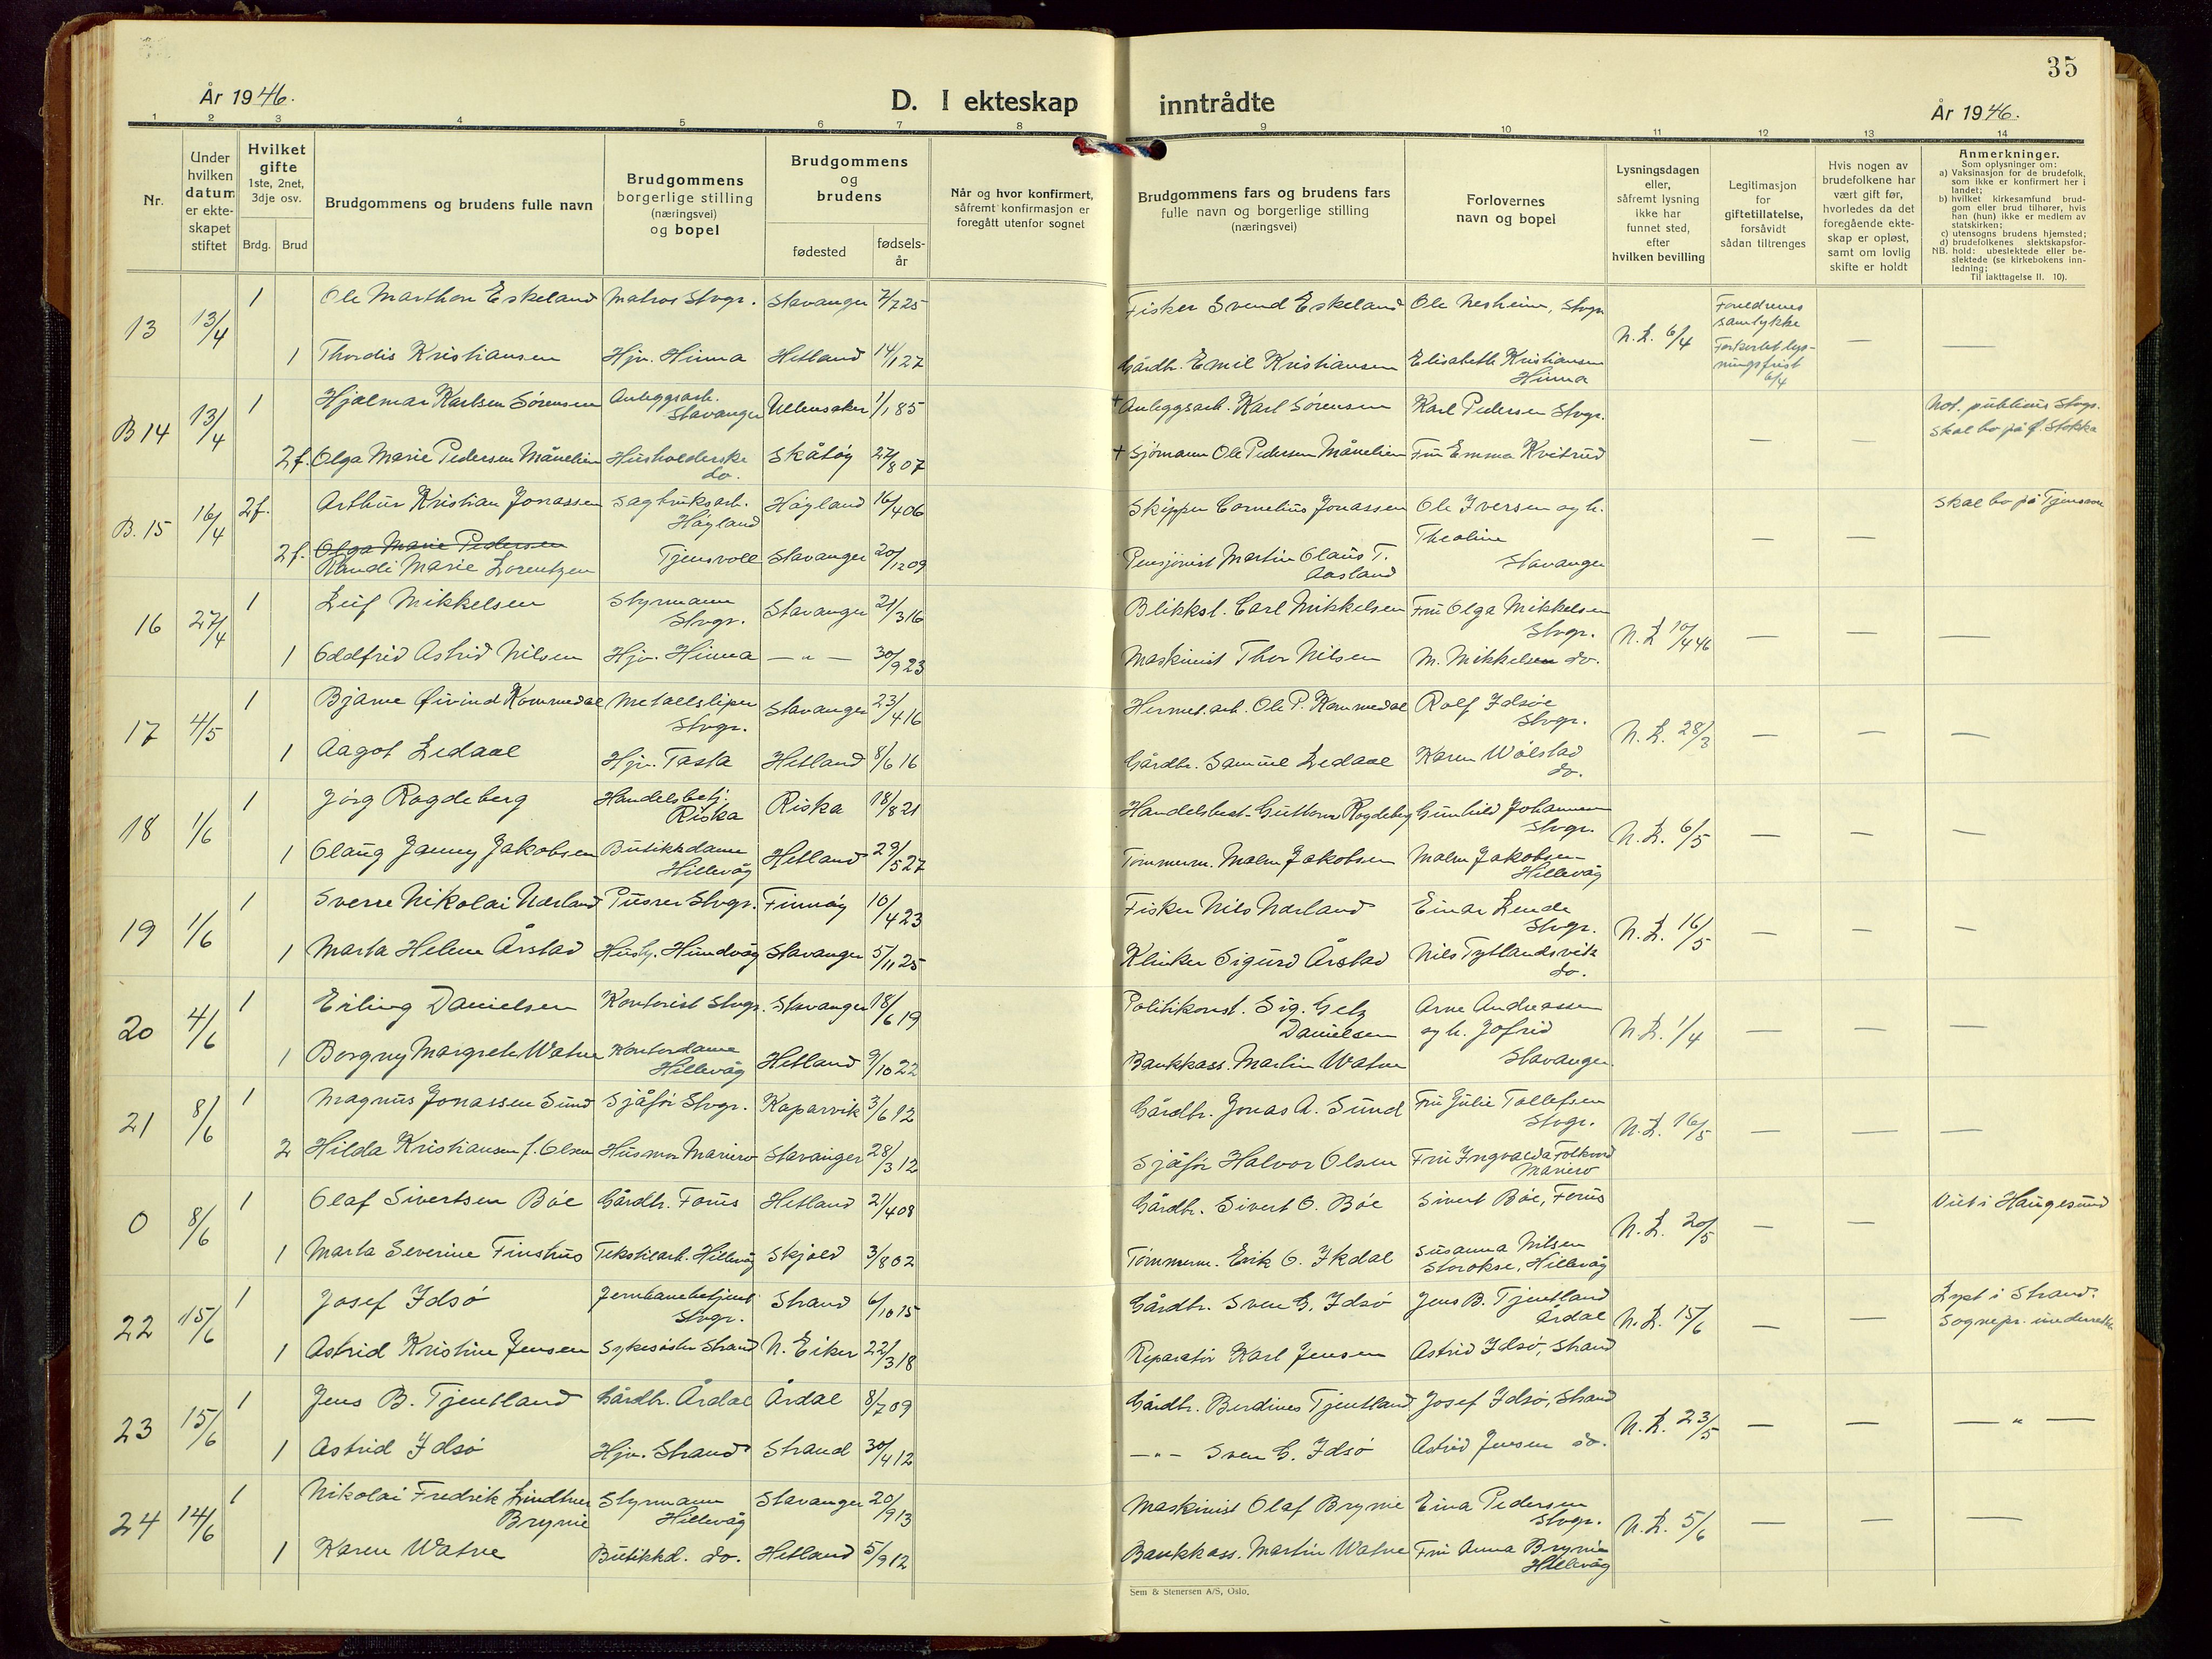 35
År 1946.
D. I ekteskap inntrådte
År 1946.
1 2 3 4 5 6 7 8 9 10 11 12 13 14
Nr.
Under hvilken datum er ekte-skapet stiftet
Hvilket gifte 1ste, 2net, 3dje osv.
Brdg. Brud
Brudgommens og brudens fulle navn
Brudgommens borgerlige stilling (næringsvei) og bopel
Brudgommens og brudens
fødested
fødsels-år
Når og hvor konfirmert, såfremt konfirmasjon er foregått utenfor sognet
Brudgommens fars og brudens fars fulle navn og borgerlige stilling (næringsvei)
Forlovernes navn og bopel
Lysningsdagen eller, såfremt lysning ikke har funnet sted, efter hvilken bevilling
Legitimasjon for giftetillatelse, forsåvidt sådan tiltrenges
Hvis nogen av brudefolkene har vært gift før, hvorledes da det foregående ekte-skap er opløst, samt om lovlig skifte er holdt
Anmerkninger.
Som oplysninger om:
a) Vaksinasjon for de brudefolk, som ikke er konfirmert her i landet;
b) hvilket kirkesamfund brud-gom eller brud tilhører, hvis han (hun) ikke er medlem av statskirken;
c) utensogns brudens hjemsted;
d) brudefolkenes slektskapsfor-hold: ubeslektede eller be-slektede (se kirkebokens inn-ledning;
NB. Til iakttagelse II. 10).
13 13/4 1 Ole Marthon Eskeland Matros Stvgr. Stavanger 7/7 25 Fisker Svend Eskeland Ole Nesheim, Stvgr. N. L. 6/4 Foreldrenes samtykke Forkortet lys-ningsfrist 6/4 — —
1 Thordis Kristiansen Hjv. Hinna Hetland 14/1 27 Gårdbr. Emil Kristiansen Elisabeth Kristiansen Hinna
B 14 13/4 1 Hjalmar Karlsen Sørensen Anleggsarb. Stavanger Ullensaker 1/1 85 + Anleggsarb. Karl Sørensen Karl Pedersen Stvgr. — — Not. publicus Stvgr. Skal bo på Ø. Stokka
2f. Olga Marie Pedersen Månelien Husholderske do. Skåtøy 27/8 07 + Sjømann Ole Pedersen Månelien Fru Emma Kvitrud
B. 15 16/4 2f. Arthur Kristian Jonassen Sagbruksarb. Høyland Høyland 16/4 06 Skipper Cornelius Jonassen Ole Iversen og h. Theoline Stavanger — — Skal bo på
2f. Olga Marie Pedersen
Randi Marie Lorentzen Tjensvoll Stavanger 20/12 09 Pensjonist Martin Olaus T. Aasland
16 27/4 1 Leif Mikkelsen Styrmann Stvgr. Stavanger 21/3 16 Blikksl. Carl Mikkelsen Fru Olga Mikkelsen Stvgr. N. L. 10/4 46 — — —
1 Oddfrid Astrid Nilsen Hjv. Hinna — " — 30/9 23 Maskinist Thor Nilsen M. Mikkelsen do.
17 4/5 1 Bjarne Øivind Kommedal Metallsliper Stvgr. Stavanger 23/4 16 Hermet.arb. Ole P. Kommedal Rolf Idsøe Stvgr. N. L. 28/3 — — —
1 Aagot Ledaal Hjv. Tasta Hetland 8/6 16 Gårdbr. Samuel Ledaal Karen Wølstad do.
18 1/6 1 Jørg Rogdeberg Handelsbetj. Riska Riska 18/8 21 Handelsbest. Guttorm Rogdeberg Gunhild Johannesen Stvgr. N. L. 6/5 — — —
1 Olaug Janny Jakobsen Butikkdame Hillevåg Hetland 29/5 27 Tømmerm. Malm Jakobsen Malm Jakobsen Hillevåg
19 1/6 1 Sverre Nikolai Nærland Pusser Stvgr. Finnøy 10/4 23 Fisker Nils Nærland Einar Lende Stvgr. N. L. 16/5 — — —
1 Marta Helene Årstad Hush. Hundvåg Stavanger 5/11 25 Klinker Sigurd Årstad Nils Tytlandsvik do.
20 4/6 1 Erling Danielsen Kontorist Stvgr. Stavanger 18/6 19 Politikonst. Sig. Getz Danielsen Arne Andreassen og h. Jofrid Stavanger N. L. 1/4 — — —
1 Borgny Margrete Watne Kontordame Hillevåg Hetland 9/10 22 Bankkass. Martin Watne
21 8/6 1 Magnus Jonassen Sund Sjåfør Stvgr. Kaparvik 3/6 12 Gårdbr. Jonas A. Sund Fru Julie Tollefsen Stvgr. N. L. 16/5 — — —
2 Hilda Kristiansen f. Olsen Husmor Mariero Stavanger 28/3 12 Sjåfør Halvor Olsen Fru Ingvalda Folkvord Mariero
0 8/6 1 Olaf Sivertsen Bøe Gårdbr. Forus Hetland 21/4 08 Gårdbr. Sivert O. Bøe Sivert Bøe, Forus N. L. 20/5 — — Viet i Haugesund
1 Marta Severine Finshus Tekstilarb. Hillevåg Skjold 3/8 02 Tømmerm. Erik O. Ikdal Susanna Nilsen Storokse, Hillevåg
22 15/6 1 Josef Idsø Jernbanebetjent Stvgr. Strand 6/10 15 Gårdbr. Sven G. Idsø Jens B. Tjentland Årdal N. L. 15/6 — — Lyst i Strand. Sognepr. underrettet
1 Astrid Kristine Jensen Sykesøster Strand N. Eiker 22/3 18 Reparatør Karl Jensen Astrid Idsø, Strand
23 15/6 1 Jens B. Tjentland Gårdbr. Årdal Årdal 8/7 09 Gårdbr. Berdines Tjentland Josef Idsø, Strand N. L. 23/5 — — — " —
1 Astrid Idsø Hjv. Strand Strand 30/4 12 — " — Sven G. Idsø Astrid Jensen do.
24 14/6 1 Nikolai Fredrik Lindtner Brynie Styrmann Hillevåg Stavanger 20/9 13 Maskinist Olaf Brynie Eina Pedersen Stvgr. N. L. 5/6 — — —
1 Karen Watne Butikkd. do. Hetland 5/9 12 Bankkass. Martin Watne Fru Anna Brynie Hillevåg
Sem & Stenersen A/S, Oslo.